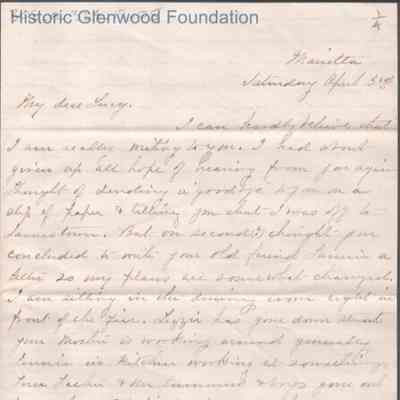 Historic Glenwood Foundation
1/4
Marietta
Saturday April 3rd
My dear Lucy.
I can hardly believe that
I am really writing to you. I had about
given up all hope of hearing from you again
thought of a good bye on a
slip of paper & telling you that I was off to
Jamestown. But on second thought you
concluded to write your old friend a
letter so my plans are somewhat changed.
I am sitting in the dining room right in
front of the fire. Lizzie has gone down street
your is working around generally
in kitchen working at something
& gone out